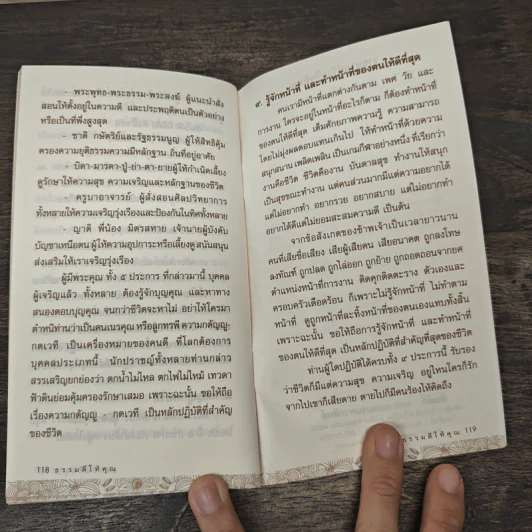 - พระพุทธ-พระธรรม-พระสงฆ์ ผู้แนะนำสั่ง
สอนให้ตั้งอยู่ในความดี และประพฤติตนเป็นตัวอย่าง
หรือเป็นที่พึ่งสูงสุด
- ชาติ กษัตริย์และรัฐธรรมนูญ ผู้ให้สิทธิคุ้ม
ครองความยุติธรรมความมีหลักฐาน ถิ่นที่อยู่อาศัย
- บิดา-มารดา-ปู่-ย่า-ตา-ยายผู้ให้กำเนิดเลี้ยง
ดูรักษาให้ความสุข ความเจริญและหลักฐานของชีวิต
- ครูบาอาจารย์ ผู้สั่งสอนศิลปวิทยาการ
ทั้งหลายให้ความเจริญรุ่งเรืองและป้องกันในทิศทั้งหลาย
- ญาติ พี่น้อง มิตรสหาย เจ้านายผู้บังคับ
บัญชาเหนือตน ผู้ให้ความอุปการะหรือเลี้ยงดูสนับสนุน
ส่งเสริมให้เราเจริญรุ่งเรือง
ผู้มีพระคุณ ทั้ง ๕ ประการ ที่กล่าวมานี้ บุคคล
ผู้เจริญแล้ว ทั้งหลาย ต้องรู้จักบุญคุณ และหาทาง
สนองตอบบุญคุณ จนกว่าชีวิตจะหาไม่ อย่าให้ใครมา
ตำหนิท่านว่าเป็นคนเนรคุณ หรือลูกทรพี ความกตัญญู-
กตเวที เป็นเครื่องหมายของคนดี ที่โลกต้องการ
บุคคลประเภทนี้ นักปราชญ์ทั้งหลายท่านกล่าว
สรรเสริญยกย่องว่า ตกน้ำไม่ไหล ตกไฟไม่ไหม้ เทวดา
ฟ้าดินย่อมคุ้มครองรักษาเสมอ เพราะฉะนั้น ขอให้ถือ
เรื่องความกตัญญู - กตเวที เป็นหลักปฏิบัติที่สำคัญ
ของชีวิต
118 ธรรมดีให้คุณ
๙. รู้จักหน้าที่ และทำหน้าที่ของตนให้ดีที่สุด
คนเรามีหน้าที่แตกต่างกันตาม เพศ วัย และ
การงาน ใครจะอยู่ในหน้าที่อะไรก็ตาม ก็ต้องทำหน้าที่
ของตนให้ดีที่สุด เต็มศักยภาพความรู้ ความสามารถ
โดยไม่มุ่งผลตอบแทนเกินไป ให้ทำหน้าที่ด้วยความ
สนุกสนาน เพลิดเพลิน เป็นเกมกีฬาอย่างหนึ่ง ที่เรียกว่า
งานคือชีวิต ชีวิตคืองาน บันดาลสุข ทำงานให้สนุก
เป็นสุขขณะทำงาน แต่คนส่วนมากมีแต่ความอยากได้
แต่ไม่อยากทำ อยากรวย อยากสบาย แต่ไม่อยากทำ
อยากได้ดีแต่ไม่ยอมสะสมความดี เป็นต้น
จากข้อสังเกตของข้าพเจ้าเป็นเวลายาวนาน
คนที่เสียชื่อเสียง เสียผู้เสียคน เสียอนาคต ถูกลงโทษ
ลงทัณฑ์ ถูกปลด ถูกไล่ออก ถูกย้าย ถูกถอดถอนจากยศ
ตำแหน่งหน้าที่การงาน ติดคุกติดตะราง ตัวเองและ
ครอบครัวเดือดร้อน ก็เพราะไม่รู้จักหน้าที่ ไม่ทำตาม
หน้าที่ ดูถูกหน้าที่ละทิ้งหน้าที่ของตนเองแทบทั้งสิ้น
เพราะฉะนั้น ขอให้ถือการรู้จักหน้าที่ และทำหน้าที่
ของตนให้ดีที่สุด เป็นหลักปฏิบัติที่สำคัญที่สุดของชีวิต
ท่านผู้ใดปฏิบัติได้ครบทั้ง ๙ ประการนี้ รับรอง
ว่าชีวิตก็มีแต่ความสุข ความเจริญ อยู่ไหนใครก็รัก
จากไปเขาก็เสียดาย ตายไปก็มีคนร้องไห้คิดถึง
ธรรมดีให้คุณ 119